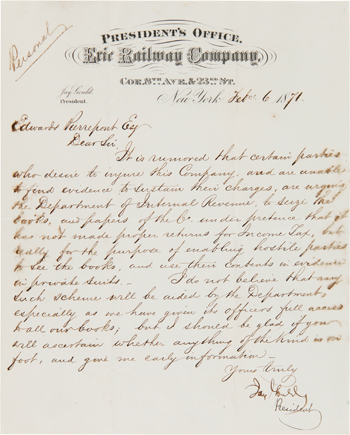 Personal
PRESIDENT'S OFFICE,
Erie Railway Company,
COR. 8TH AVE. & 23RD ST.
Jay Gould
President.
New York Feb. 6 1871.
Edwards Pierrepont Esq
Dear Sir,
It is rumored that certain parties
who desire to injure this Company, and are unable
to find evidence to sustain their charges, are urging
the Department of Internal Revenue, to seize the
books, and papers of the Co. under pretence that it
has not made proper returns for Income Tax, but
really for the purpose of enabling hostile parties
to see the books, and use their contents in evidence
in private suits. — I do not believe that any
such scheme will be aided by the Department,
especially as we have given its officers full access
to all our books; but I should be glad if you
will ascertain whether anything of the kind is on
foot, and give me early information —
Yours truly
Jay Gould
President